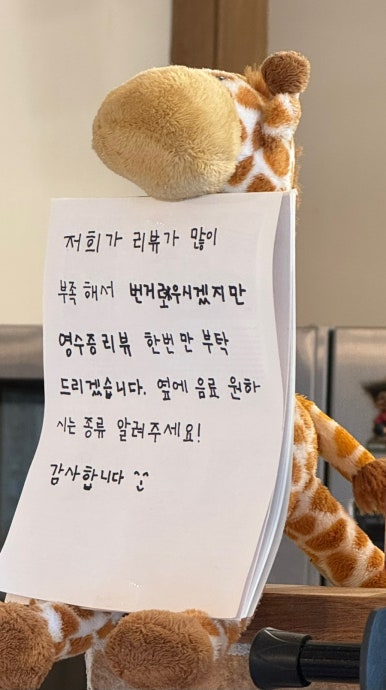 저희가 리뷰가 많이
부족해서 번거로우시겠지만
영수증리뷰 한번만 부탁
드리겠습니다. 옆에 음료 원하
시는 종류 알려주세요!
감사합니다 ^^